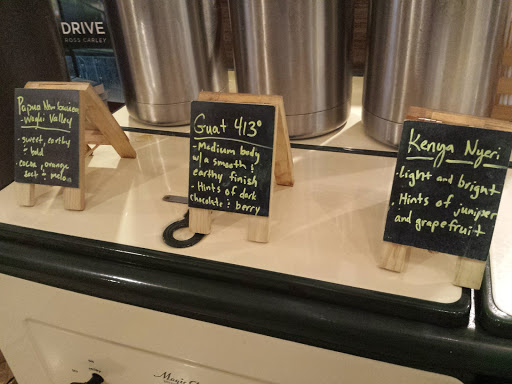 DRIVE
ROSS CARLEY
Papua New Guinea
- Waghi Valley
- sweet, earthy
& bold
- cocoa, orange
zest & melon
Guat 413°
- Medium body
w/ a smooth &
earthy finish
- Hints of dark
chocolate & berry
Kenya Nyeri
- Light and bright
- Hints of juniper
and grapefruit
Magic